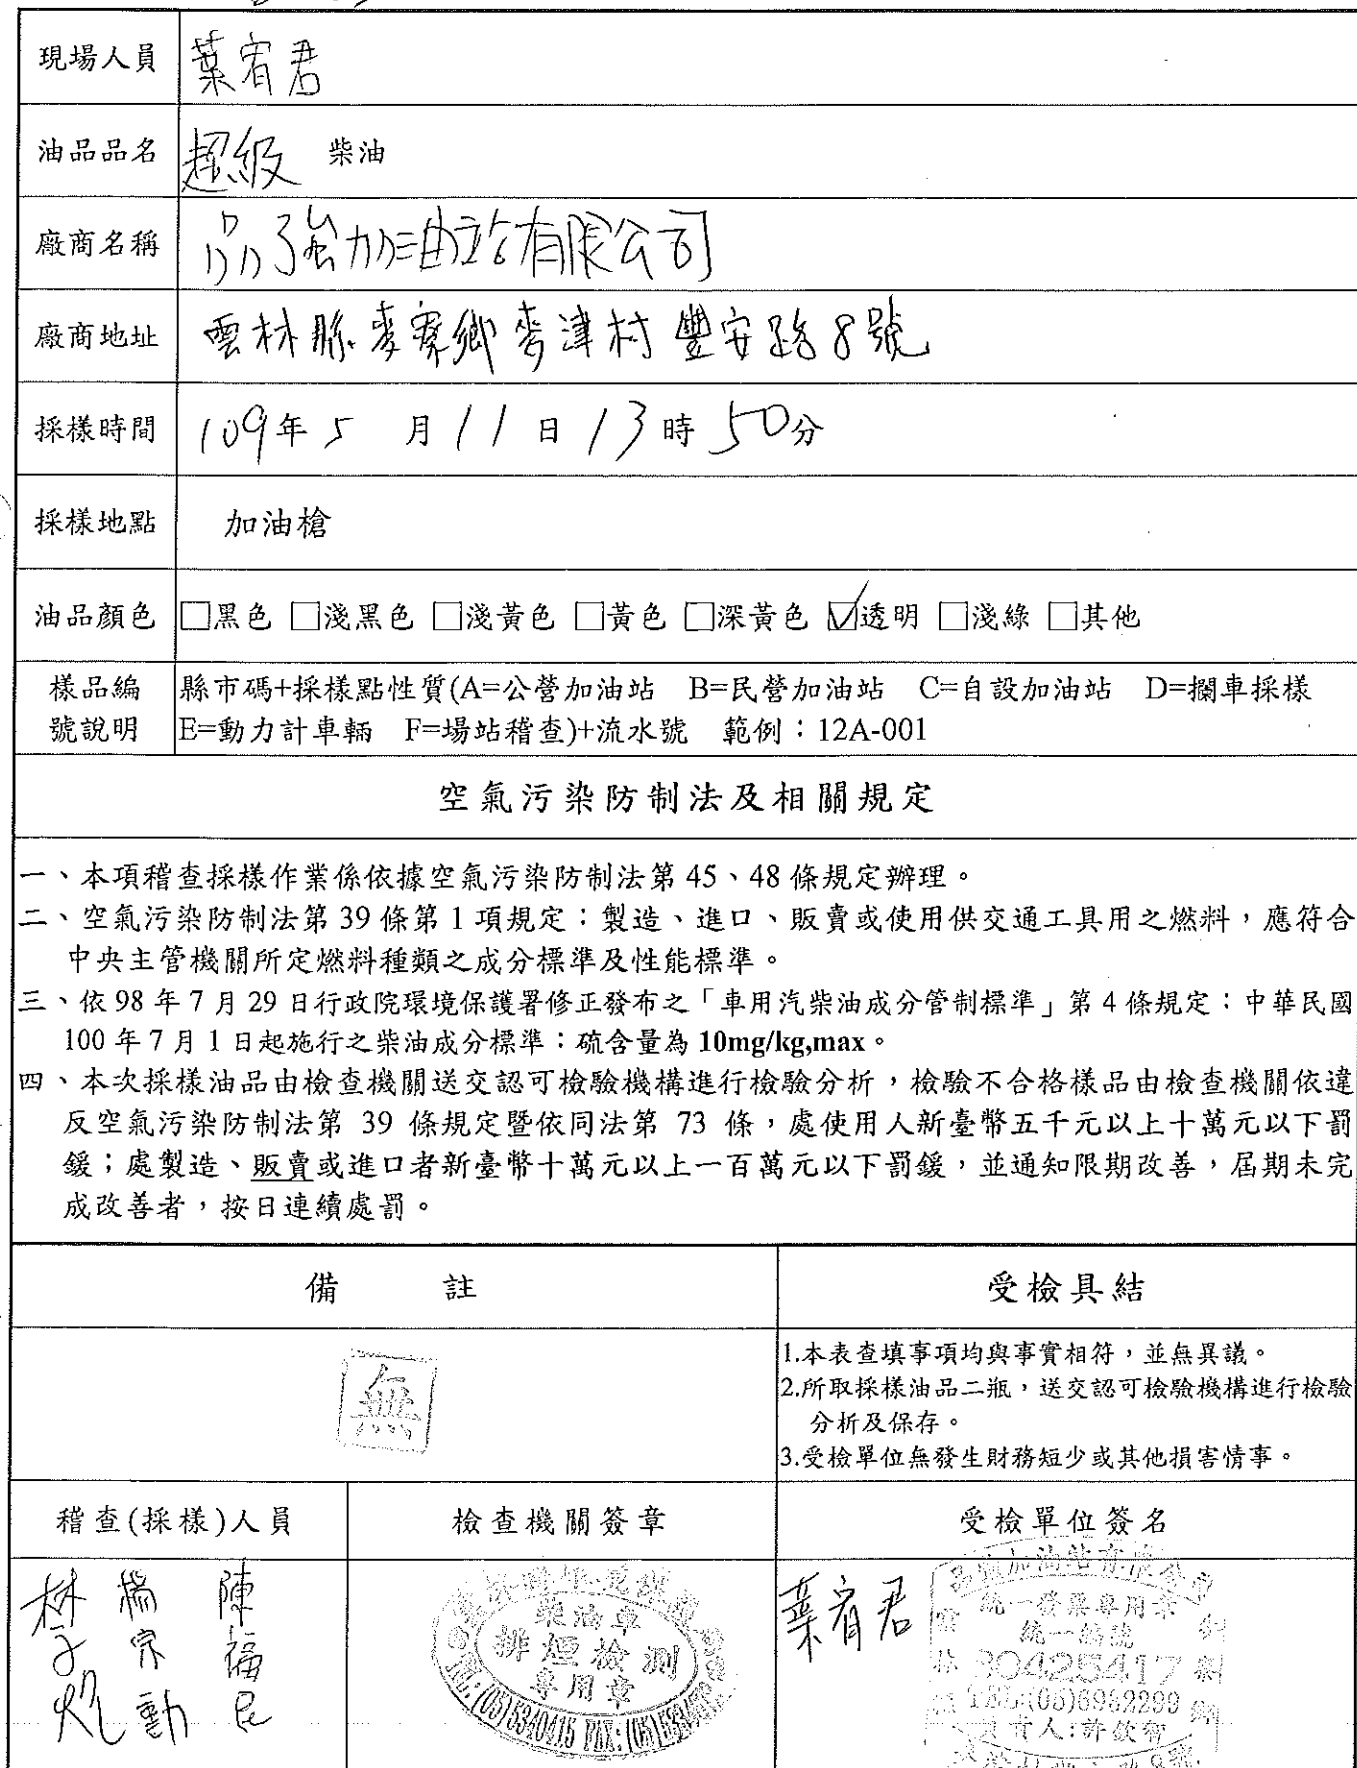 現場人員 葉宥君
油品品名 超級 柴油
廠商名稱 品強加油站有限公司
廠商地址 雲林縣麥寮鄉麥津村豐安路8號
採樣時間 109年5月11日13時50分
採樣地點 加油槍
油品顏色 □黑色 □淺黑色 □淺黃色 □黃色 □深黃色 ☑透明 □淺綠 □其他
樣品編
號說明
縣市碼+採樣點性質(A=公營加油站 B=民營加油站 C=自設加油站 D=攔車採樣
E=動力計車輛 F=場站稽查)+流水號 範例：12A-001
空氣污染防制法及相關規定
一、本項稽查採樣作業係依據空氣污染防制法第 45、48 條規定辦理。
二、空氣污染防制法第 39 條第 1 項規定：製造、進口、販賣或使用供交通工具用之燃料，應符合
中央主管機關所定燃料種類之成分標準及性能標準。
三、依 98 年 7 月 29 日行政院環境保護署修正發布之「車用汽柴油成分管制標準」第 4 條規定：中華民國
100 年 7 月 1 日起施行之柴油成分標準：硫含量為 10mg/kg,max。
四、本次採樣油品由檢查機關送交認可檢驗機構進行檢驗分析，檢驗不合格樣品由檢查機關依違
反空氣污染防制法第 39 條規定暨依同法第 73 條，處使用人新臺幣五千元以上十萬元以下罰
鍰；處製造、販賣或進口者新臺幣十萬元以上一百萬元以下罰鍰，並通知限期改善，屆期未完
成改善者，按日連續處罰。
備 註
無
受檢具結
1.本表查填事項均與事實相符，並無異議。
2.所取採樣油品二瓶，送交認可檢驗機構進行檢驗
分析及保存。
3.受檢單位無發生財務短少或其他損害情事。
稽查(採樣)人員 檢查機關簽章 受檢單位簽名
陳福民
楊宗勳
林子
柴油車
排煙檢測
專用章
TEL:(05)5340415
葉宥君
品強加油站有限公司
統一發票專用章
統一編號
30425417
TEL:(05)6932299
負責人:許欽智